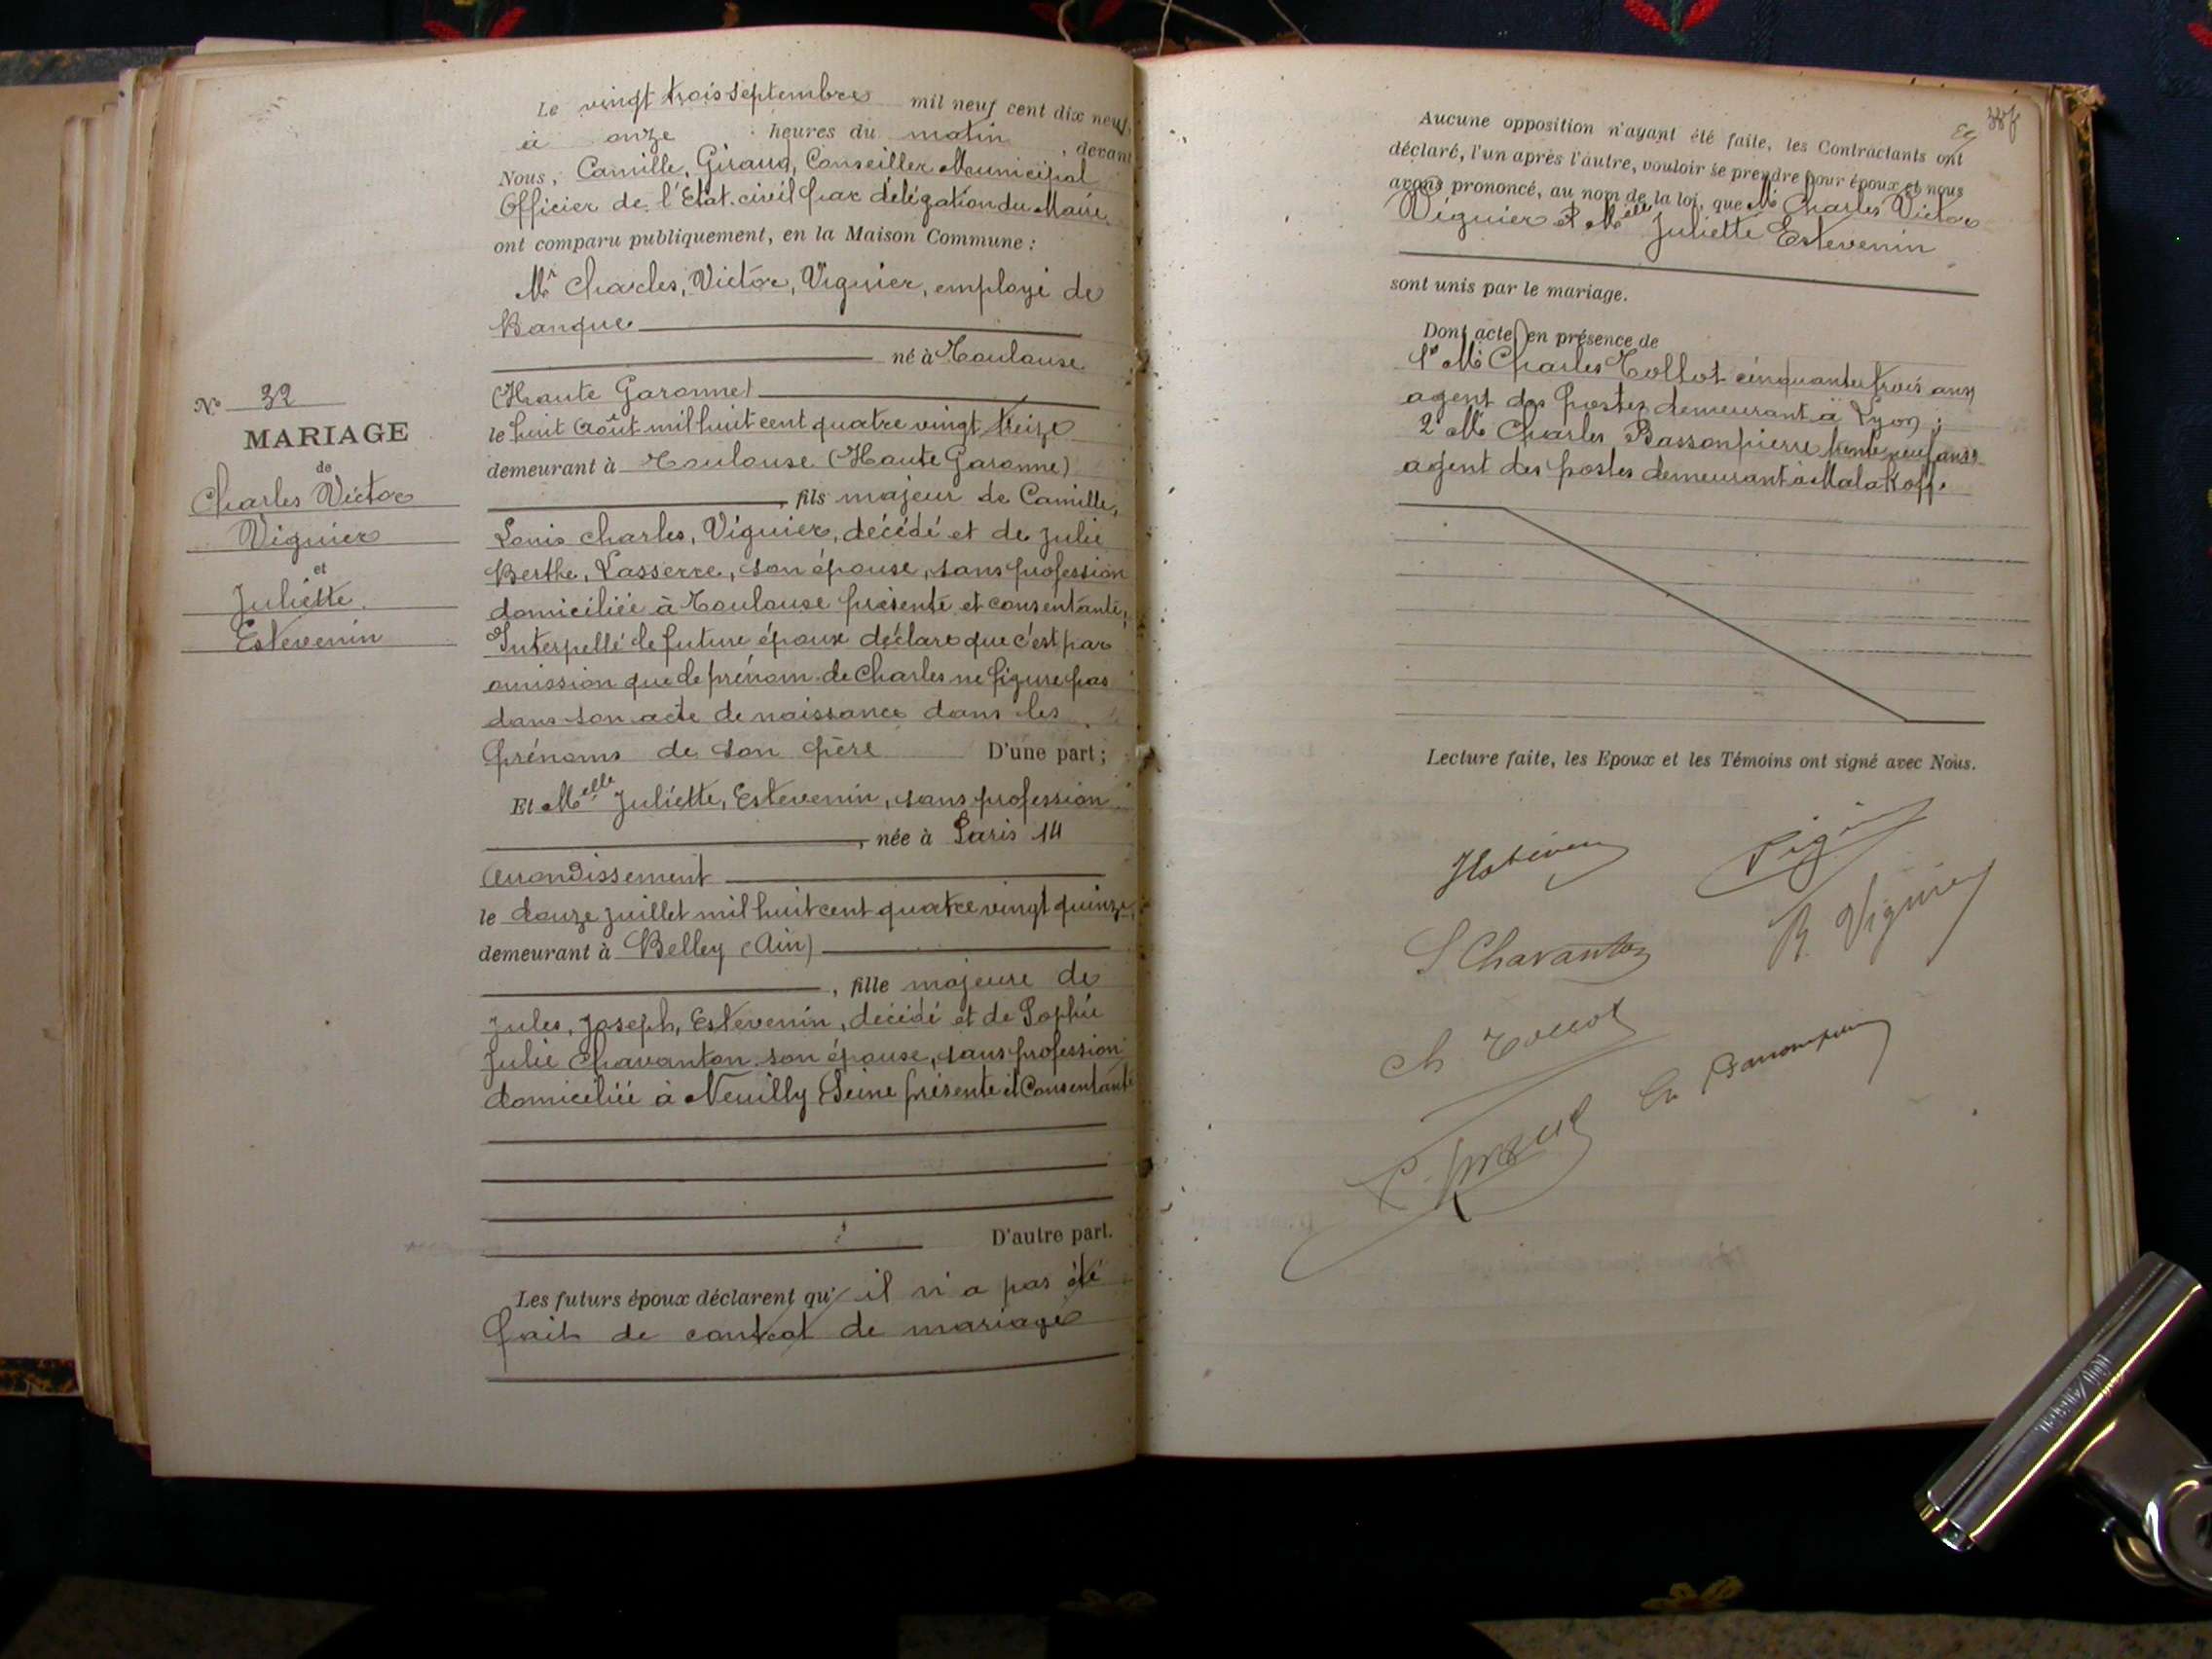 Le vingt trois septembre mil neuf cent dix neuf,
à onze heures du matin, devant
Nous, Camille, Giraud, Conseiller Municipal
Officier de l'Etat-civil par délégation du Maire
ont comparu publiquement, en la Maison Commune :
Mr Charles, Victor, Viguier, employé de
Banque
né à Toulouse
(Haute Garonne)
le huit Août mil huit cent quatre vingt treize
demeurant à Toulouse (Haute Garonne)
, fils majeur de Camille,
Louis Charles, Viguier, décédé et de Julie
Berthe, Lasserre, son épouse, sans profession
domiciliée à Toulouse présente et consentante,
Interpellé le future époux déclare que c'est par
omission que le prénom de Charles ne figure pas
dans son acte de naissance dans les
prénoms de son père D'une part ;
Et Melle Juliette, Estevenin, sans profession
, née à Paris 14
Arrondissement
le douze juillet mil huit cent quatre vingt quinze,
demeurant à Belley (Ain)
, fille majeure de
Jules, Joseph, Estevenin, décédé et de Sophie
Julie Chavanton son épouse, sans profession
domiciliée à Neuilly Seine présente et Consentante
D'autre part.
Les futurs époux déclarent qu'il n'a pas été
fait de contrat de mariage
No 32
MARIAGE
de
Charles Victor
Viguier
et
Juliette
Estevenin
Aucune opposition n'ayant été faite, les Contractants ont
déclaré, l'un après l'autre, vouloir se prendre pour époux et nous
avons prononcé, au nom de la loi, que Mr Charles Victor
Viguier et Melle Juliette Estevenin
sont unis par le mariage.
Dont acte en présence de
1° Mr Charles Tollot cinquante trois ans
agent des postes demeurant à Lyon ;
2° Mr Charles Bassonpierre trente neuf ans
agent des postes demeurant à Malakoff.
Lecture faite, les Epoux et les Témoins ont signé avec Nous.
JEstevenin
S Chavanton
B. Viguier
Ch Tollot